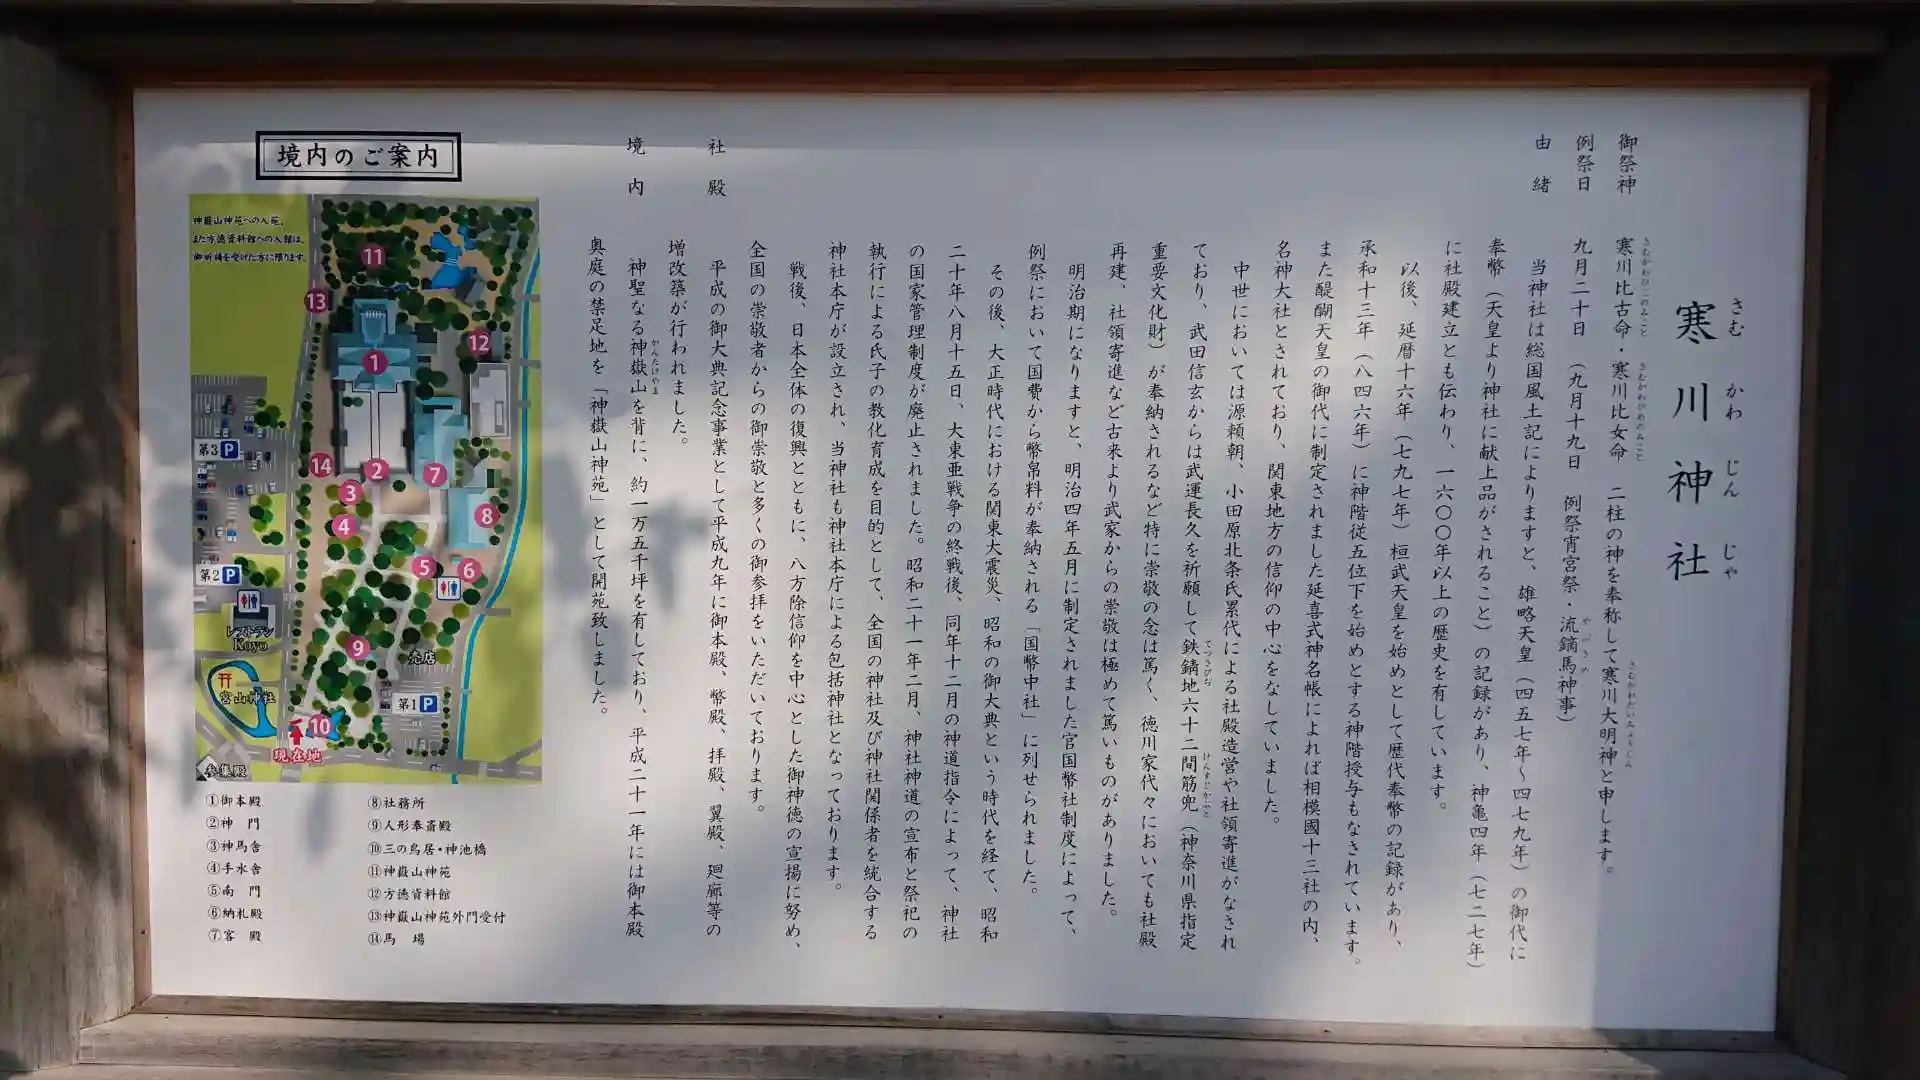 寒川神社
さむかわじんじゃ
御祭神 寒川比古命・寒川比女命 二柱の神を奉称して寒川大明神と申します。
さむかわひこのみこと さむかわひめのみこと さむかわだいみょうじん
例祭日 九月二十日 (九月十九日 例祭宵宮祭・流鏑馬神事)
やぶさめ
由緒 当神社は総国風土記によりますと、雄略天皇(四五七年〜四七九年)の御代に
奉幣(天皇より神社に献上品がされること)の記録があり、神亀四年(七二七年)
に社殿建立とも伝わり、一六〇〇年以上の歴史を有しています。
以後、延暦十六年(七九七年)桓武天皇を始めとして歴代奉幣の記録があり、
承和十三年(八四六年)に神階従五位下を始めとする神階授与もなされています。
また醍醐天皇の御代に制定されました延喜式神名帳によれば相模國十三社の内、
名神大社とされており、関東地方の信仰の中心をなしていました。
中世においては源頼朝、小田原北条氏累代による社殿造営や社領寄進がなされ
ており、武田信玄からは武運長久を祈願して鉄錆地六十二間筋兜(神奈川県指定
てつさびぢ けんすじかぶと
重要文化財)が奉納されるなど特に崇敬の念は篤く、徳川家代々においても社殿
再建、社領寄進など古来より武家からの崇敬は極めて篤いものがありました。
明治期になりますと、明治四年五月に制定されました官国幣社制度によって、
例祭において国費から幣帛料が奉納される「国幣中社」に列せられました。
その後、大正時代における関東大震災、昭和の御大典という時代を経て、昭和
二十年八月十五日、大東亜戦争の終戦後、同年十二月の神道指令によって、神社
の国家管理制度が廃止されました。昭和二十一年二月、神社神道の宣布と祭祀の
執行による氏子の教化育成を目的として、全国の神社及び神社関係者を統合する
神社本庁が設立され、当神社も神社本庁による包括神社となっております。
戦後、日本全体の復興とともに、八方除信仰を中心とした御神徳の宣揚に努め、
全国の崇敬者からの御崇敬と多くの御参拝をいただいております。
社殿 平成の御大典記念事業として平成九年に御本殿、幣殿、拝殿、翼殿、廻廊等の
増改築が行われました。
境内 神聖なる神嶽山を背に、約一万五千坪を有しており、平成二十一年には御本殿
かんたけやま
奥庭の禁足地を「神嶽山神苑」として開苑致しました。
境内のご案内
神嶽山神苑への入苑、
また方徳資料館への入館は、
御祈祷を受けた方に限ります。
11
13
12
1
第3 P
14
2
7
3
4
8
5
6
第2 P
レストラン
Koyo
9
売店
宮山神社
第1 P
10
現在地
参集殿
①御本殿
②神門
③神馬舎
④手水舎
⑤南門
⑥納札殿
⑦客殿
⑧社務所
⑨人形奉斎殿
⑩三の鳥居・神池橋
⑪神嶽山神苑
⑫方徳資料館
⑬神嶽山神苑外門受付
⑭馬場